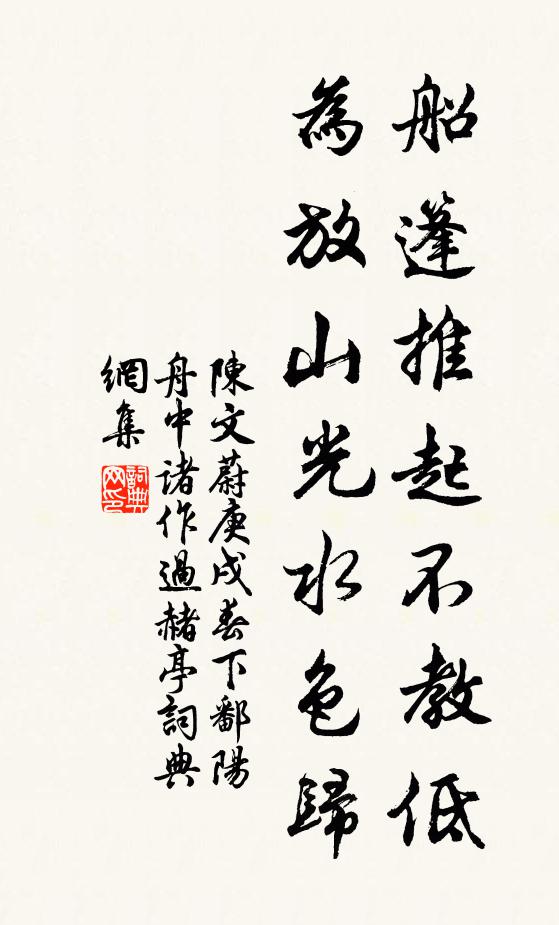 船篷推起不教低
為放山光水色歸
陳文蔚庚戌春下鄱陽
舟中諸作過赭亭詞典
網集
詞典網印